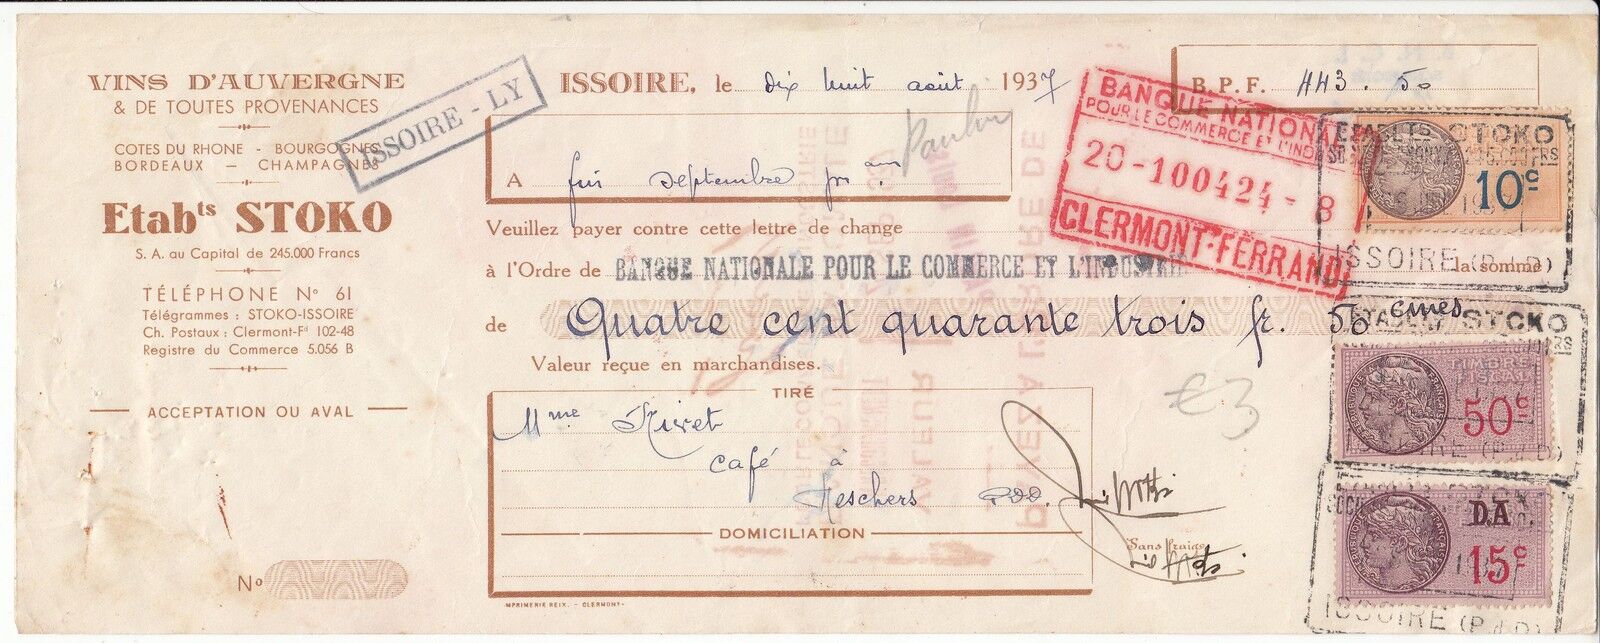 VINS D'AUVERGNE
& DE TOUTES PROVENANCES
COTES DU RHONE - BOURGOGNES
BORDEAUX — CHAMPAGNES
Etabts STOKO
S. A. au Capital de 245.000 Francs
TÉLÉPHONE No 61
Télégrammes : STOKO-ISSOIRE
Ch. Postaux : Clermont-Fd 102-48
Registre du Commerce 5.056 B
ACCEPTATION OU AVAL
No
ISSOIRE - LY
ISSOIRE, le dix huit août 1937
B. P. F. 443.50
A fin septembre
Veuillez payer contre cette lettre de change
à l'Ordre de BANQUE NATIONALE POUR LE COMMERCE ET L'INDUSTRIE la somme
de Quatre cent quarante trois fr. 50 cmes
Valeur reçue en marchandises.
TIRÉ
Mme Rivet
café à
Neschers PDD.
DOMICILIATION
Sans frais
IMPRIMERIE REIX. - CLERMONT-
BANQUE NATIONALE
POUR LE COMMERCE ET L'IND
20-100424-8
CLERMONT-FERRAND
€3
ETABLTS STOKO
10c
ISSOIRE (P.d.D)
STOKO
TIMBRE
FISCAL
50c
(P.d.D)
D.A
15c
ISSOIRE (P.d.D)